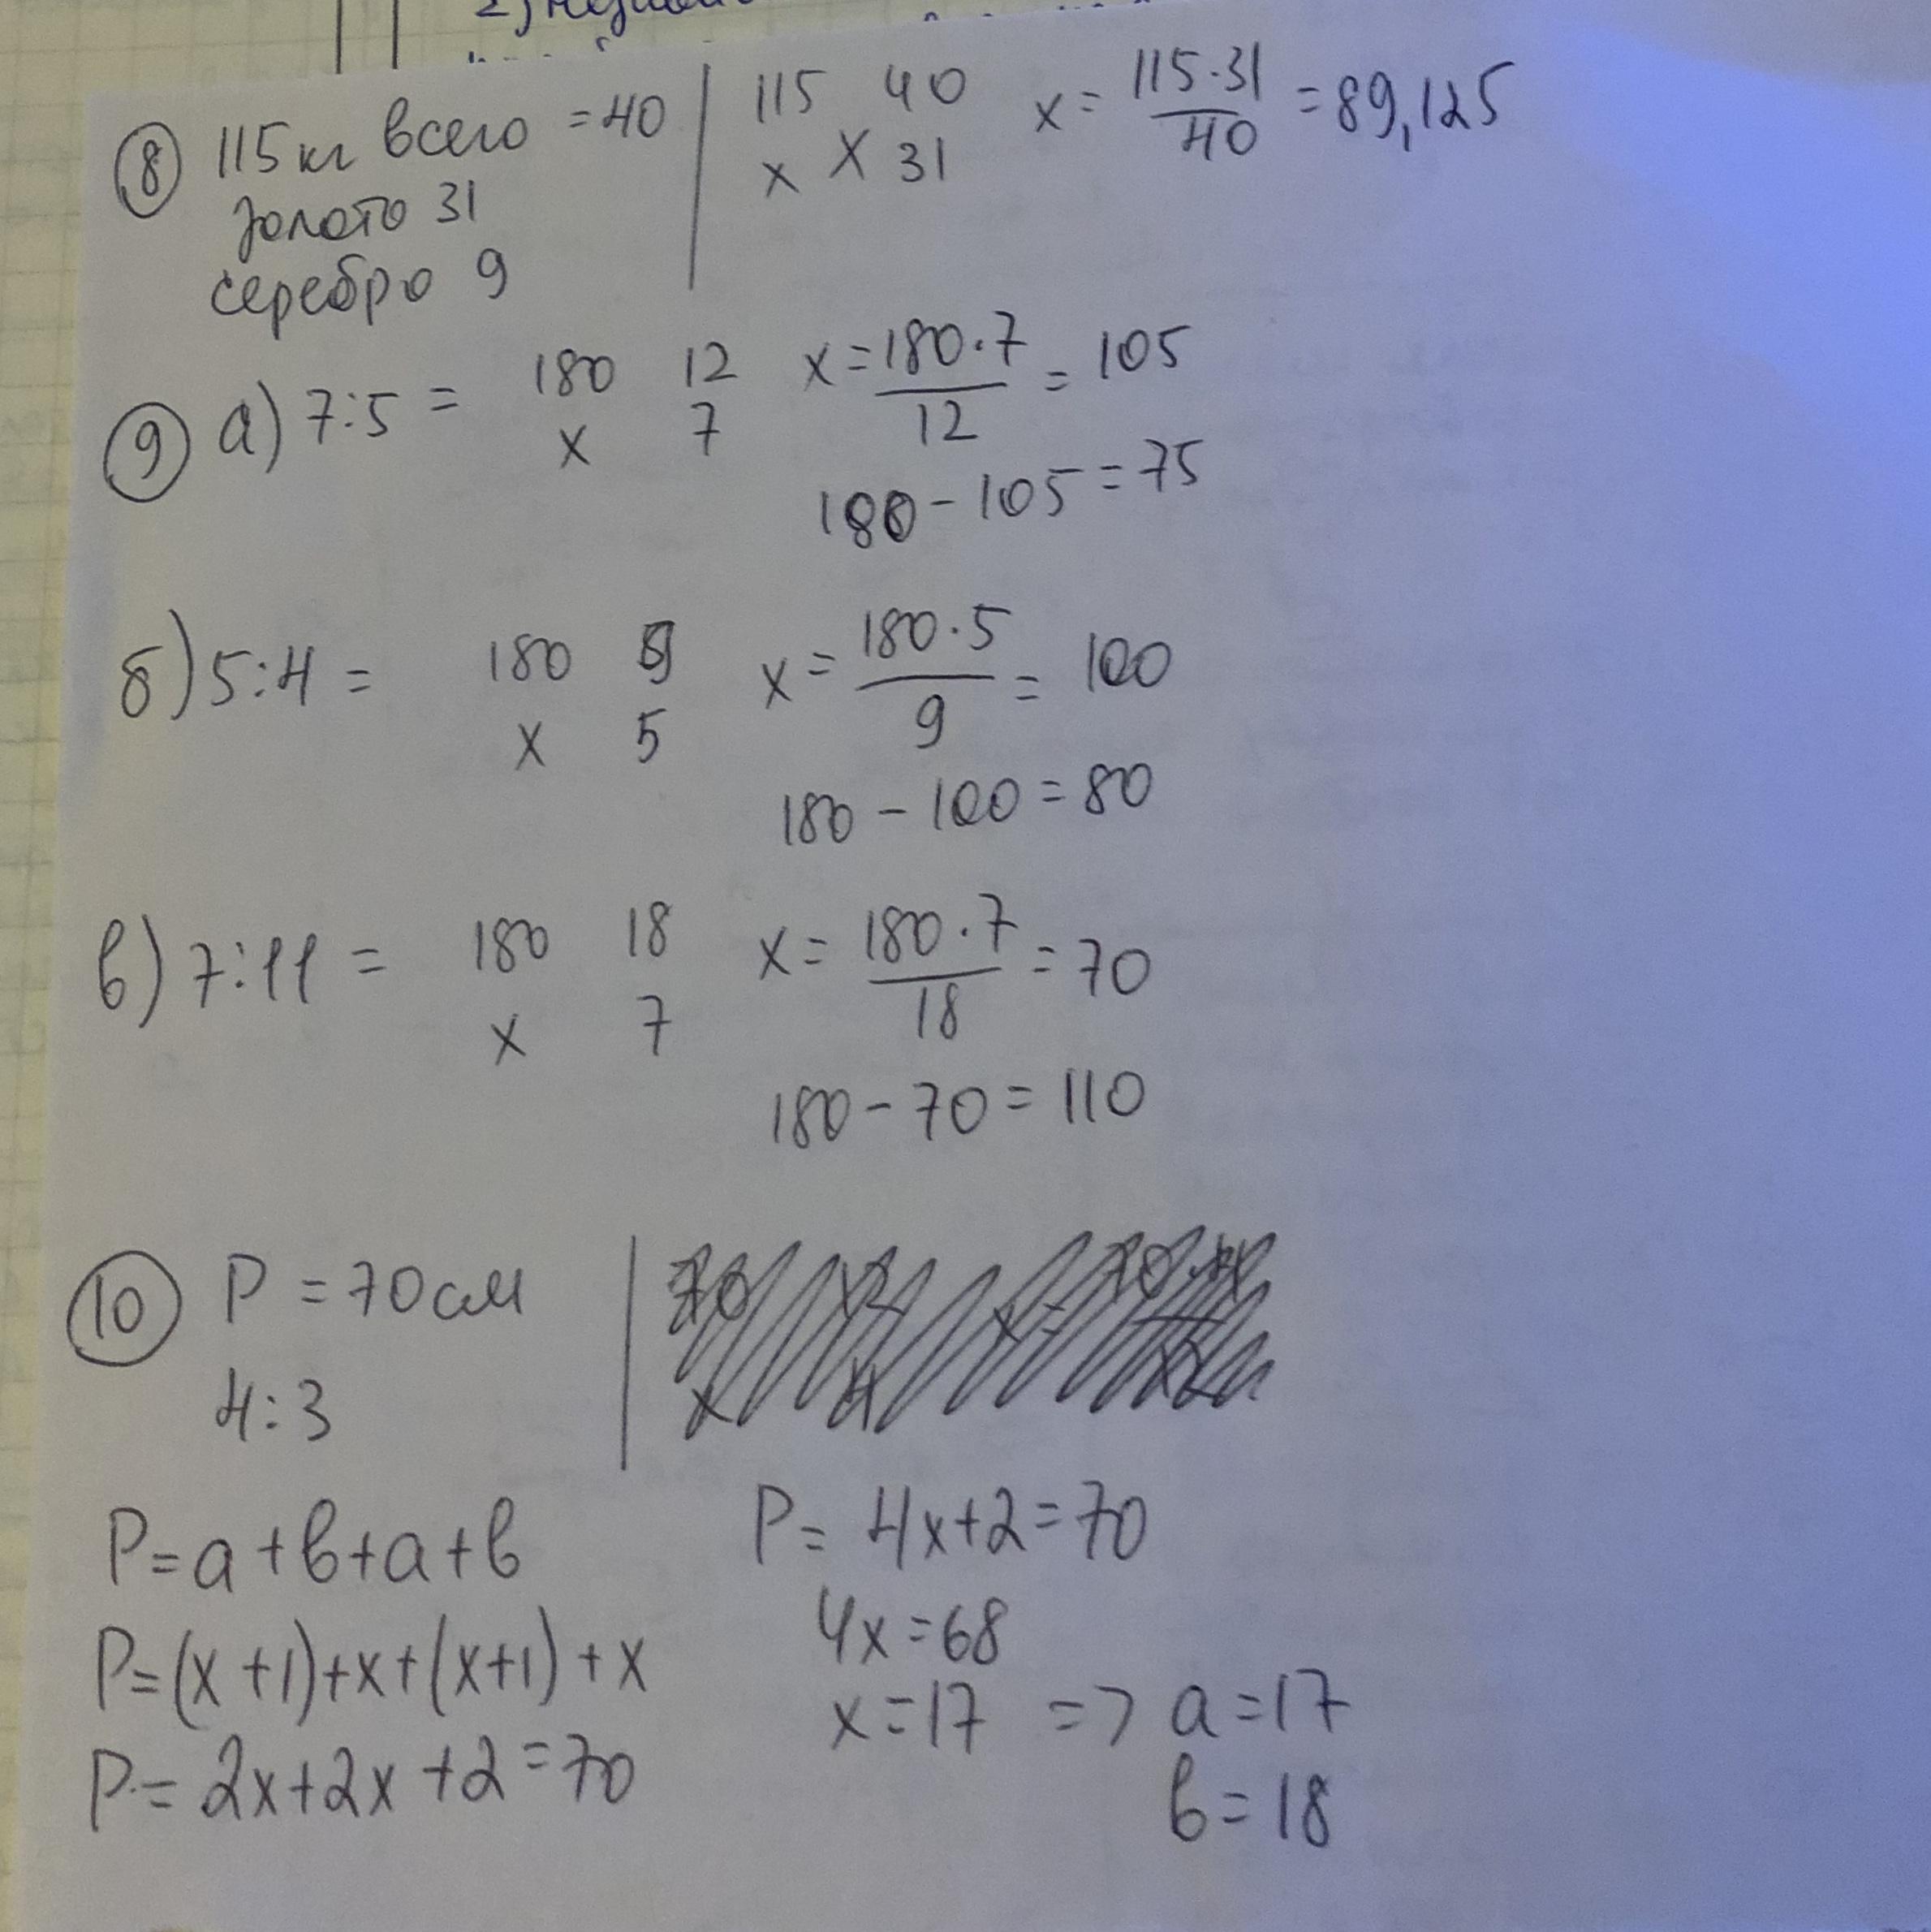 2)
8 115кг всего = 40 | 115 40 x = 115·31 / 40 = 89,125
золото 31 x X 31
серебро 9
9 а) 7:5 = 180 12 x = 180·7 / 12 = 105
x 7
180 - 105 = 75
б) 5:4 = 180 9 x = 180·5 / 9 = 100
x 5
180 - 100 = 80
в) 7:11 = 180 18 x = 180·7 / 18 = 70
x 7
180 - 70 = 110
10 P = 70 см
4:3
P = a + b + a + b
P = (x + 1) + x + (x+1) + x
P = 2x + 2x + 2 = 70
P = 4x + 2 = 70
4x = 68
x = 17 => a = 17
b = 18